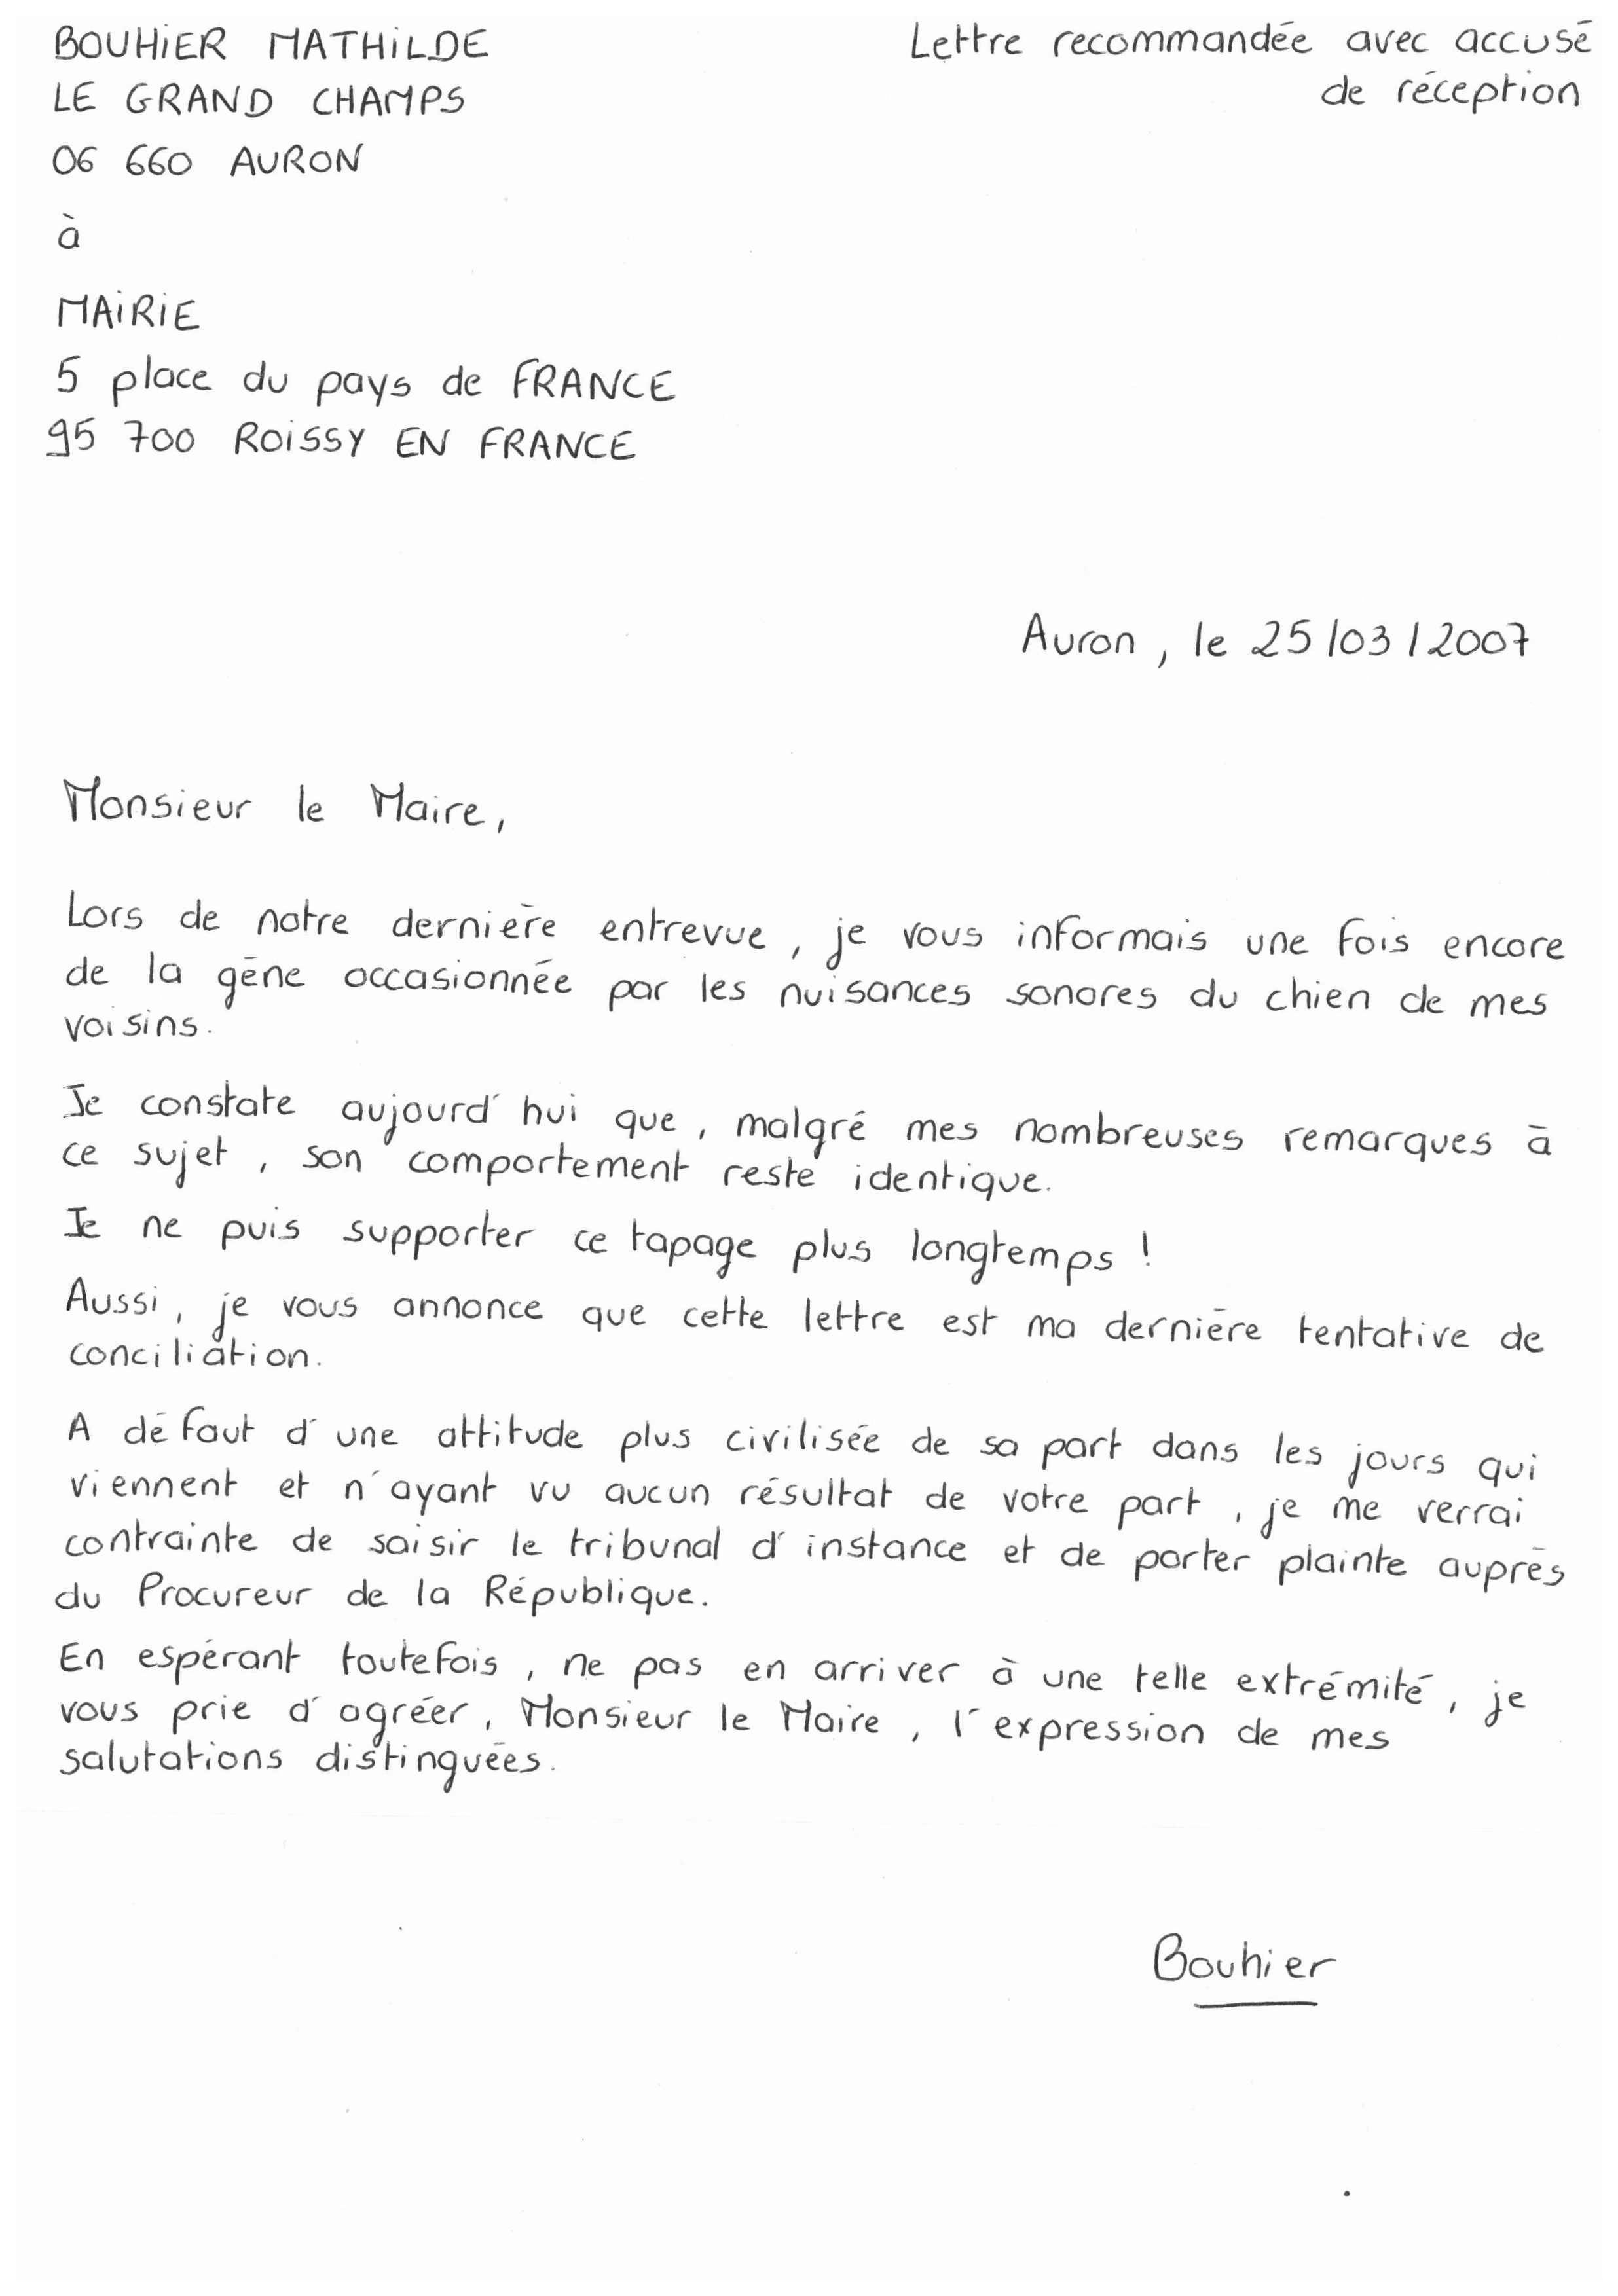 BOUHIER MATHILDE
LE GRAND CHAMPS
06 660 AURON
Lettre recommandée avec accusé
de réception
à
MAIRIE
5 place du pays de FRANCE
95 700 ROISSY EN FRANCE
Auron, le 25/03/2007
Monsieur le Maire,
Lors de notre dernière entrevue, je vous informais une fois encore
de la gêne occasionnée par les nuisances sonores du chien de mes
voisins.
Je constate aujourd'hui que, malgré mes nombreuses remarques à
ce sujet, son comportement reste identique.
Je ne puis supporter ce tapage plus longtemps !
Aussi, je vous annonce que cette lettre est ma dernière tentative de
conciliation.
A défaut d'une attitude plus civilisée de sa part dans les jours qui
viennent et n'ayant vu aucun résultat de votre part, je me verrai
contrainte de saisir le tribunal d'instance et de porter plainte auprès
du Procureur de la République.
En espérant toutefois, ne pas en arriver à une telle extrémité, je
vous prie d'agréer, Monsieur le Maire, l'expression de mes
salutations distinguées.
Bouhier